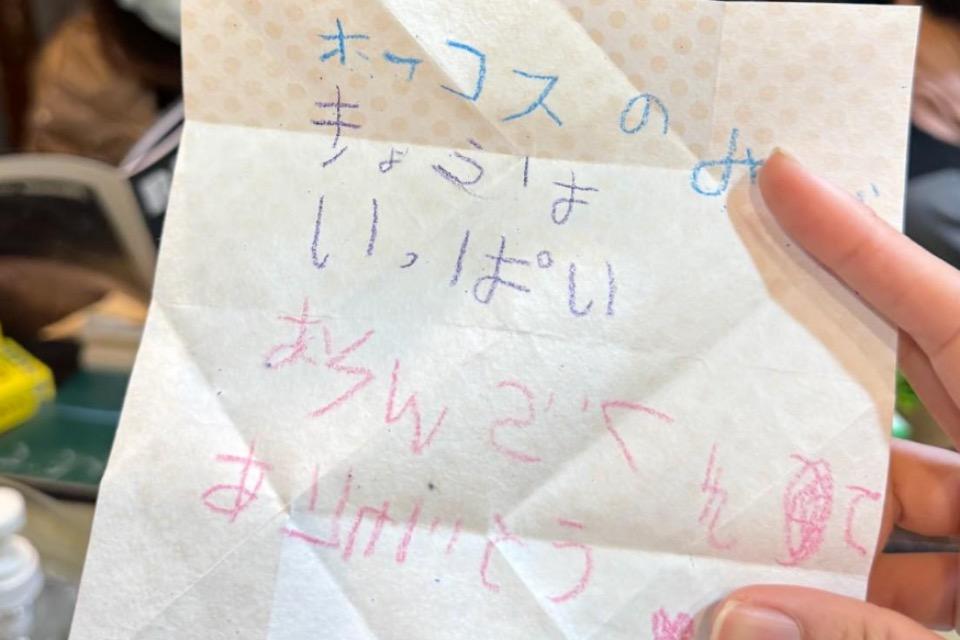 ホッコスのみ
きょうは
いっぱい
あそんでくれて
ありがとう